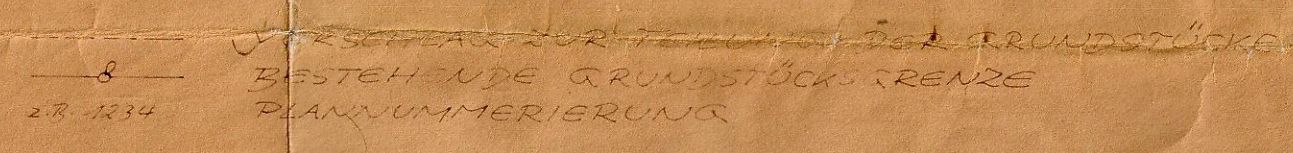 VORSCHLAG ZUR TEILUNG DER GRUNDSTÜCKE
8 BESTEHENDE GRUNDSTÜCKSGRENZE
z.B. 1234 PLANNUMMERIERUNG